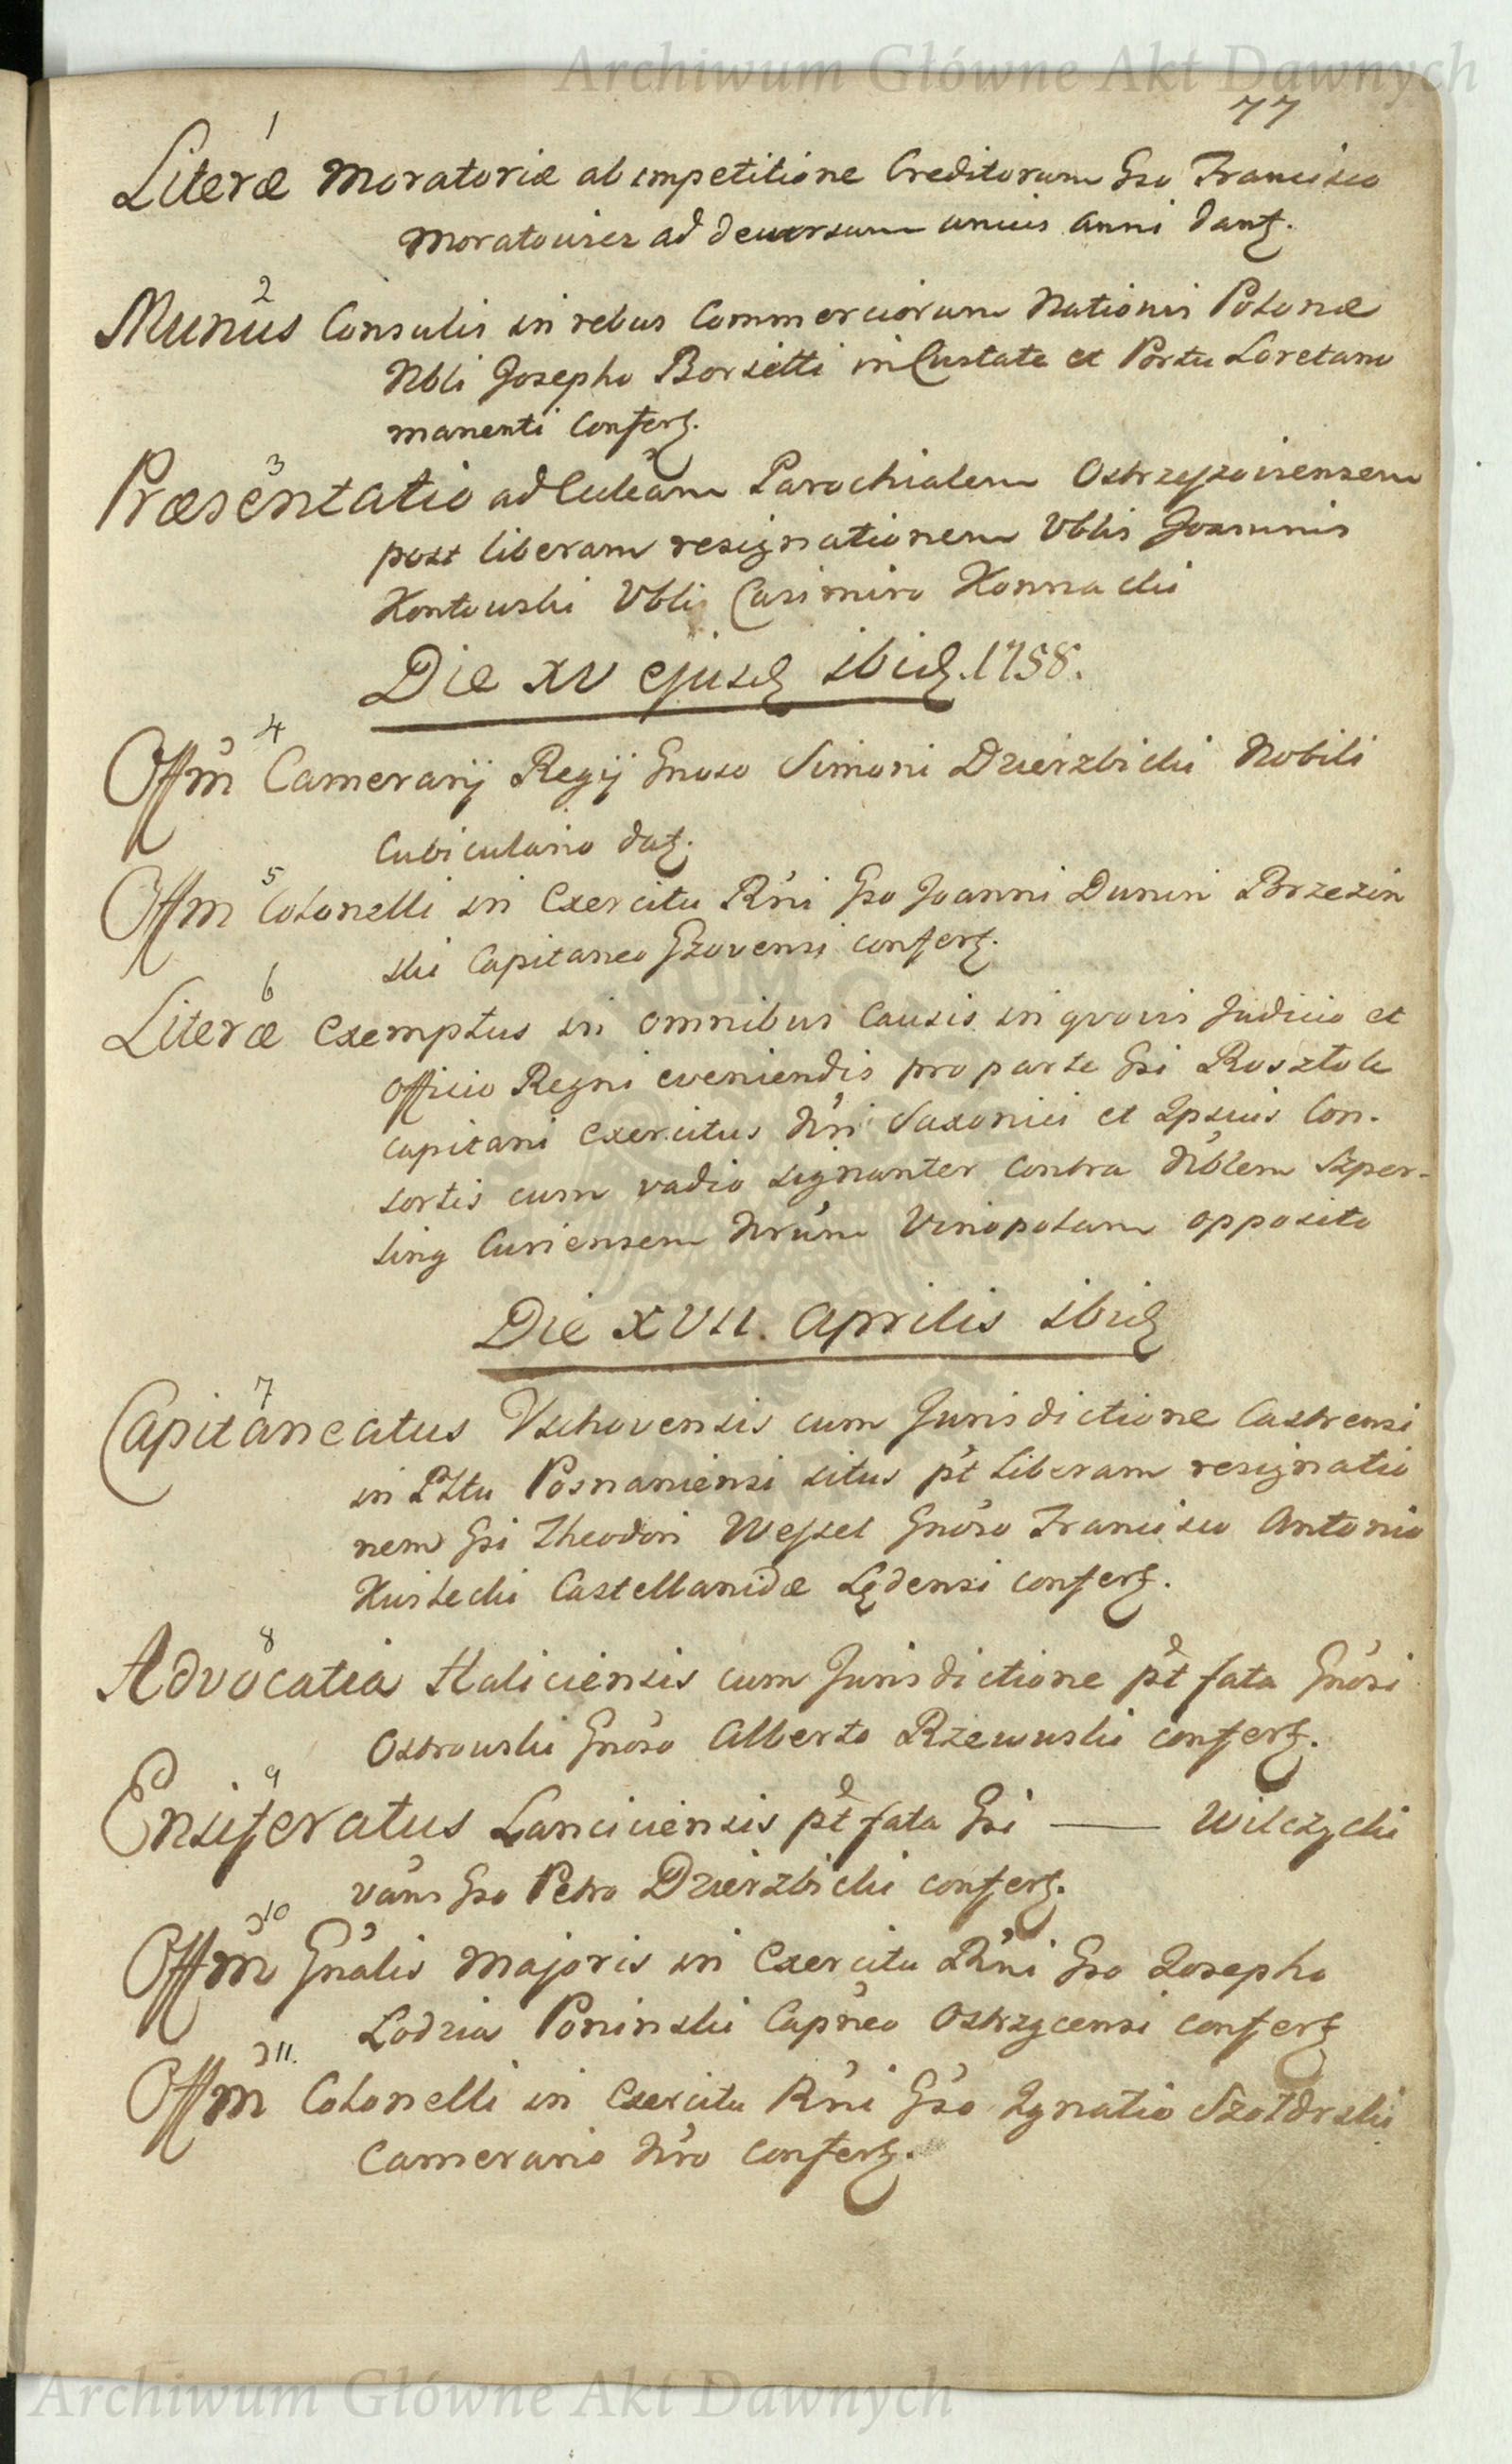 Archiwum Główne Akt Dawnych
77
1
Literæ Moratoriæ ab impetitione Creditorum Gso Francisco
ad decursum unius Anni dant.
2
Munus Consulis in rebus Commerciorum Nationis Polonæ
Nbli Josepho Borsetti in Civitate et Portu Loretano
manenti confert.
3
Præsentatio ad Ecclēam Parochialem
post liberam resignationem Vblis Joannis
Kontowski Vbli Casimiro
Die XV ejusd ibid. 1758.
4
Offm Camerarij Regij Gnoso Simoni Dzierzbicki Nobili
Cubiculario dat.
5
Offm Colonelli in Exercitu Rni Gso Joanni Dunin Brzezin
ski Capitaneo confert.
6
Literæ Exemptus in omnibus Causis in quovis Judicio et
Officio Regni eveniendis pro parte Gsi
Capitani Exercitus Nri Saxonici et Ipsius Con-
sortis cum vadio signanter contra Nblem Szper-
ling Curiensem Nrum Vinopolam opposito
Die XVII. Aprilis ibid
7
Capitaneatus Vschovensis cum Jurisdictione Castrensi
in Pltu Posnaniensi situs pt liberam resignatio
nem Gsi Theodori Wessel Gnoso Francisco Antonio
Kwilecki Castellanidæ Lędensi confert.
8
Advocatia Haliciensis cum Jurisdictione pt fata Gnosi
Ostrowski Gnoso Alberto Rzewuski confert.
9
Ensiferatus Lanciciensis pt fata Gsi —— Wilczycki
vans Gso Petro Dzierzbicki confert.
10
Offm Gnalis Majoris in Exercitu Rni Gso Josepho
Lodzia Poninski Capneo Ostrzycensi confert
11.
Offm Colonelli in Exercitu Rni Gso Ignatio Szołdrski
Camerario Nro confert.
Archiwum Główne Akt Dawnych